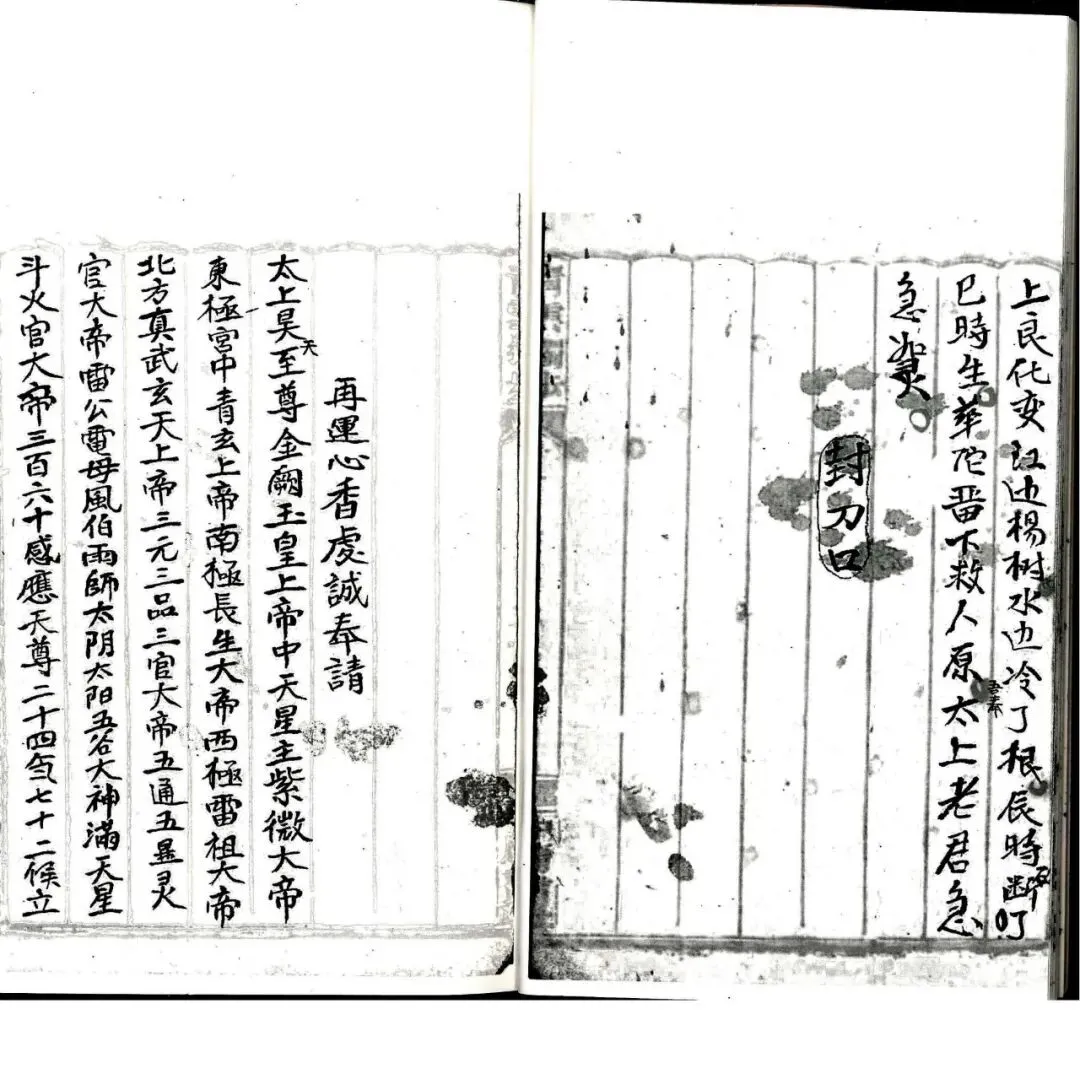 上良化变江边杨树水边冷了根辰時断叮
巳時生華陀番下救人原太上老君急
吾奉
急如灵
封刀口
再運心香虔誠奉請
太上昊至尊金闕玉皇上帝中天星主紫微大帝
天
東極宮中青玄上帝南極長生大帝西極雷祖大帝
北方真武玄天上帝三元三品三官大帝五通五显灵
官大帝雷公電母風伯雨師太阴太阳五谷大神滿天星
斗火官大帝三百六十感應天尊二十四気七十二候立